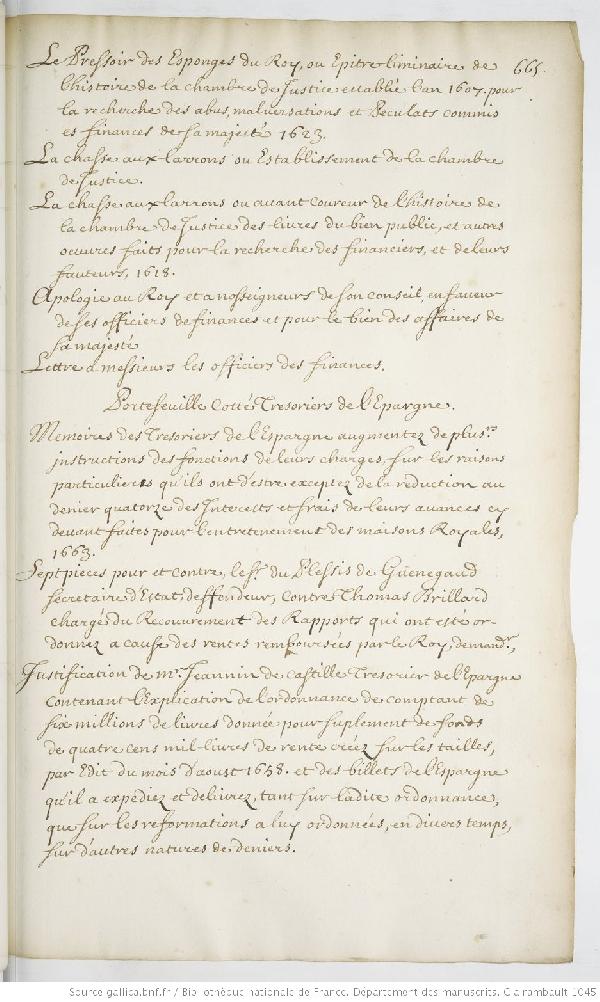 Le Pressoir des Esponges du Roy, ou Epitre liminaire de 665.
l'histoire de la chambre de Justice establie l'an 1607. pour
la recherche des abus, malversations et Peculats commis
es finances de sa majesté 1623.
La chasse aux larrons ou Establissement de la chambre
de Justice.
La chasse aux larrons ou avant coureur de l'histoire de
la chambre de Justice des livres du bien public, et autres
oeuvres faits pour la recherche des financiers, et de leurs
fauteurs, 1618.
Apologie au Roy et a nosseigneurs de son conseil, en faveur
de ses officiers de finances et pour le bien des affaires de
sa majesté
Lettre a messieurs les officiers des finances.
Portefeuille cotté Tresoriers de l'Epargne.
Memoires des Tresoriers de l'Espargne augmentez de plus.rs
instructions des fonctions de leurs charges, sur les raisons
particulieres qu'ils ont d'estre exceptez de la reduction au
denier quatorze des Interests et frais de leurs avances cy
devant faites pour l'entretenement des maisons Royales,
1663.
Sept pieces pour et contre, le s.r du Plessis de Guenegaud
secretaire d'Estat, deffendeur, contre Thomas Brillard
chargé du Recouvrement des Rapports qui ont esté or-
donnez a cause des rentes remboursées par le Roy, demand.r,
Justification de m.r Jeannin de castille Tresorier de l'Epargne
contenant l'Explication de l'ordonnance de comptant de
six millions de livres donnée pour suplement de fonds
de quatre cens mil livres de rente créez sur les tailles,
par Edit du mois d'aoust 1658. et des billets de l'Espargne
qu'il a expediez et delivrez, tant sur ladite ordonnance,
que sur les reformations a luy ordonnées, en divers temps,
sur d'autres natures de deniers.
Source gallica.bnf.fr / Bibliothèque nationale de France. Département des manuscrits. Clairambault 1045